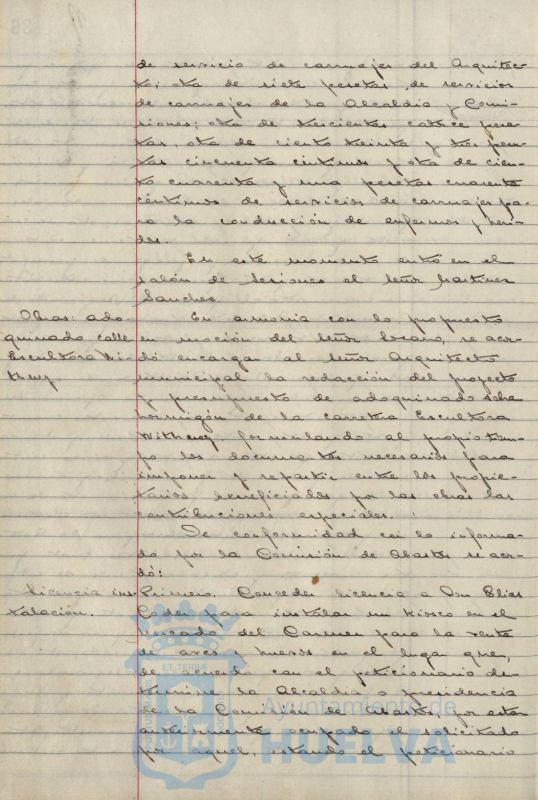 de servicio de carruajes del Arquitec-
to; otra de siete pesetas, de servicios
de carruajes de la Alcaldia y Comi-
siones; otra de trescientas catorce pese-
tas, otra de ciento treinta y tres pese-
tas cincuenta céntimos y otra de cien-
to cuarenta y una pesetas cuarenta
céntimos de servicios de carruajes pa-
ra la conducción de enfermos y heri-
dos.
En este momento entró en el
salón de sesiones el Señor Martinez
Sanchez.
Obras: ado-
quinado calle
Escultora Wi-
thney
En armonia con lo propuesto
en moción del Señor Lozano, se acor-
dó encargar al Señor Arquitecto
municipal la redacción del proyecto
y presupuesto de adoquinado sobre
hormigón de la carretera Escultora
Withney, formulando al propio tiem-
po los documentos necesarios para
imponer y repartir entre los propie-
tarios beneficiados por las obras las
contribuciones especiales.
De conformidad con lo informa-
do por la Comisión de Abastos se acor-
dó:
Licencia ins-
talación.
Primero. Conceder licencia a Don Elias
para instalar un kiosco en el
Mercado del Carmen para la venta
de aves y huevos en el lugar que,
de acuerdo con el peticionario de-
termine la Alcaldia o presidencia
de la Comisión de Abastos, por estar
anteriormente ocupado el solicitado
por aquel, estando el peticionario
Ayuntamiento de
HUELVA